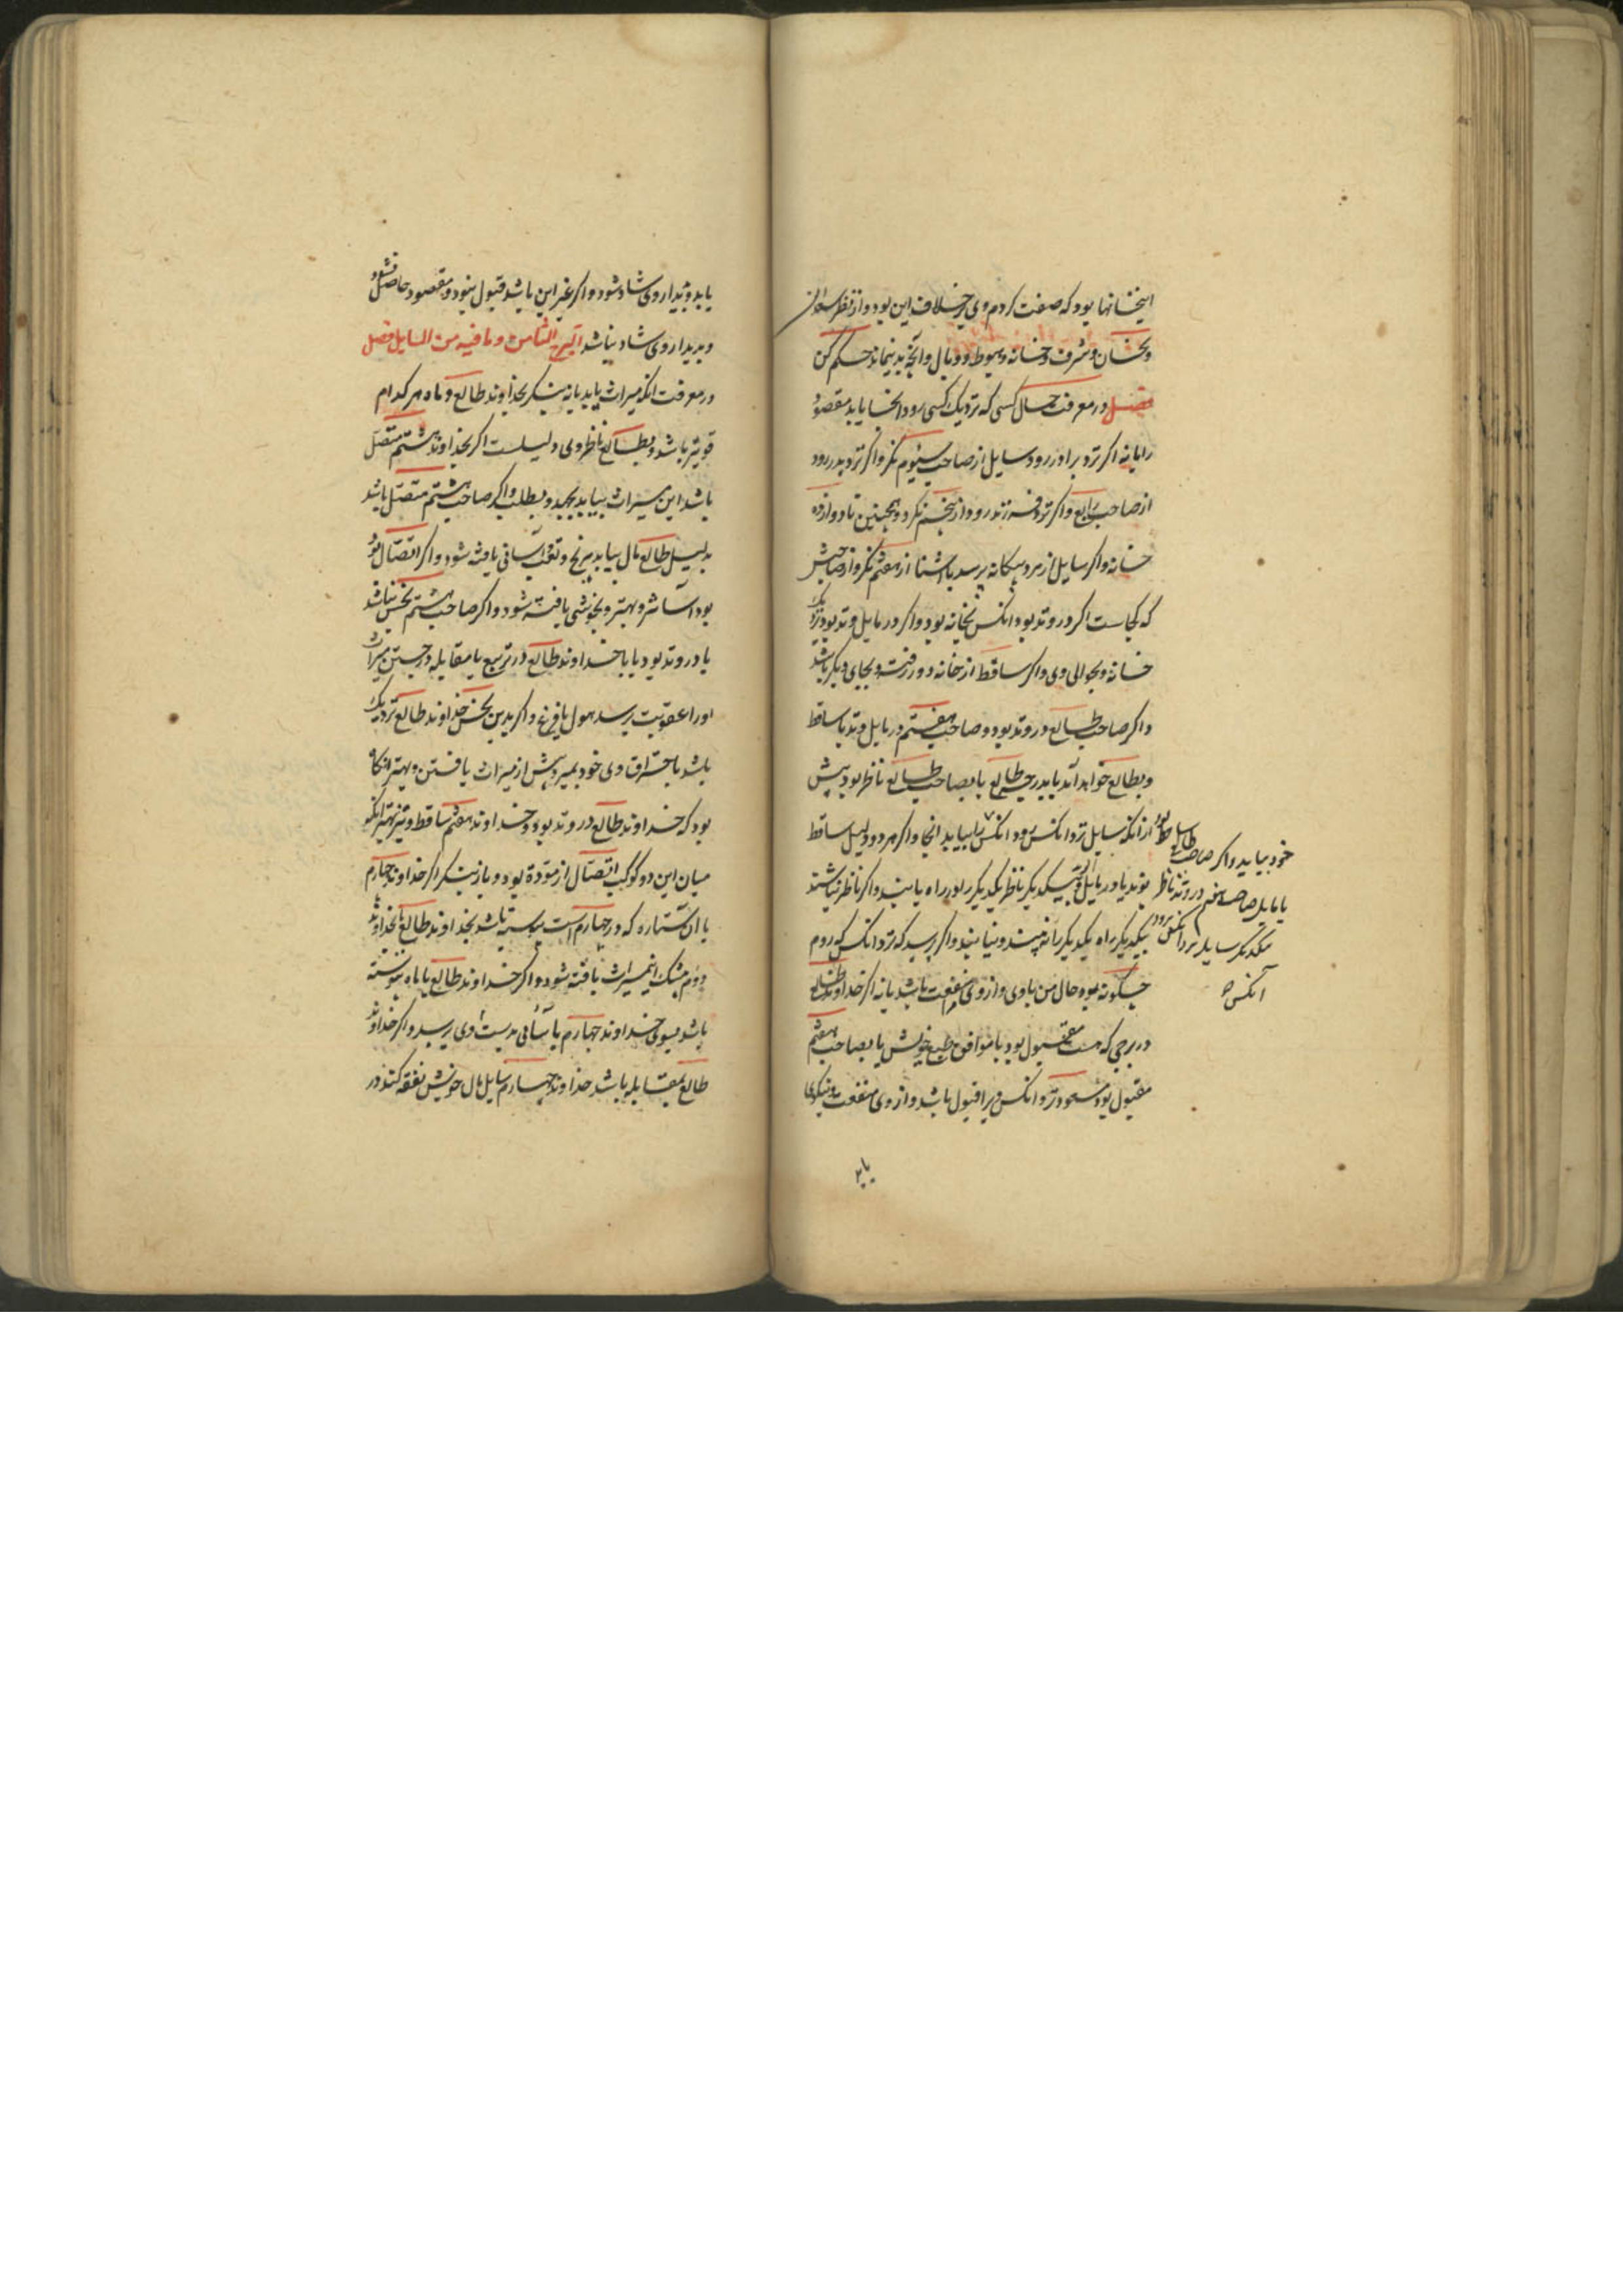 اینخسانها بود که صفت کردم وی بر خلاف این بود و از نظر سعدان
ونحسان و شرف و خانه و هبوط و وبال وانچه بدینماند حکم کن
فصل در معرفت حال کسی که نزدیک کسی رود انجا یابد مقصود
را یا نه اکر نزد برادر رود سایل از صاحب سیوم نکر و اکر نزد پدر رود
از صاحب رابع و اکر نزد فرزند رود از پنجم نکر و همچنین تا دوازده
خانه و اکر سایل از مرد بیکانه پرسد یا آشنا از هفتم نکر و از صاحبش
که کجاست اکر در وتد بود انکس بخانه بود و اکر در مایل وتد بود نزدیک
خانه و بحوالی وی و اکر ساقط از خانه دور رفت و بجای دیکر باشد
و اکر صاحب طالع در وتد بود و صاحب هفتم در مایل وتد یا ساقط
و بطالع خواهد آمد یا بدرجه طالع یا بصاحب طالع ناظر بود پیش
از آنکه سایل نزد انکس رود انکس بیاید انجا و اکر هر دو دلیل ساقط
بوند یا در مایل وتد بیکدیکر ناظر یکدیکر را در راه یابند و اکر ناظر نباشند
بیکدیکر راه یکدیکر را نه بینند و نیابند و اکر پرسد که نزد انکس که روم
چکونه بود حال من با وی و از وی منفعت باشد یا نه اکر خداوند طالع
در برجی که هست مقبول بود یا موافق طبع خویش یا بصاحب هفتم
مقبول بود مسعود نزد انکس ویرا قبول باشد و از وی منفعت و نیکوی
خود بیاید و اکر صاحب
یا مایل صاحب هفتم در وتد ناظر
یکدیکر سایل نزد انکس رود
آنکس
یابد
یابد و بدیدار وی شاد شود و اکر غیر این باشد قبول نبود و مقصود حاصل نشود
و بدیدار وی شاد نباشد البرج الثامن وما فیه من المسایل فصل
در معرفت انکه میراث یابد یا نه بنکر بخداوند طالع و ماه هر کدام
قویتر باشد و بطالع ناظر وی دلیلست اکر بخداوند هشتم متصل
باشد این میراث بیابد بجهد و بطلب و اکر صاحب هشتم متصل باشد
بدلیل طالع مال بیابد بیرنج و تعب آسانی یافته شود و اکر اتصال مودّة
بود آسانتر و بهتر و بخوشی یافته شود و اکر صاحب هشتم نحس باشد
یا در وتد بود یا با خداوند طالع در تربیع یا مقابله در جستن میراث
اورا عقوبت رسد بهول یا فزع و اکر بدین نحس خداوند طالع نزدیک
باشد باحتراق وی خود بمیرد پیش از میراث یافتن و بهتر انکاه
بود که خداوند طالع در وتد بود و خداوند هفتم ساقط و نیز بهتر انکه
میان این دو کوکب اتصال از مودّة بود و باز بنکر اکر خداوند چهارم
با ان ستاره که در چهارم است پیوسته باشد بخداوند طالع یا بخداوند
دوم بیشک این میراث یافته شود و اکر خداوند طالع یا ماه پیوسته
باشد بسوی خداوند چهارم باسانی بدست وی رسد و اکر خداوند
طالع بمقابله باشد خداوند چهارم سایل مال خویش نفقه کند در